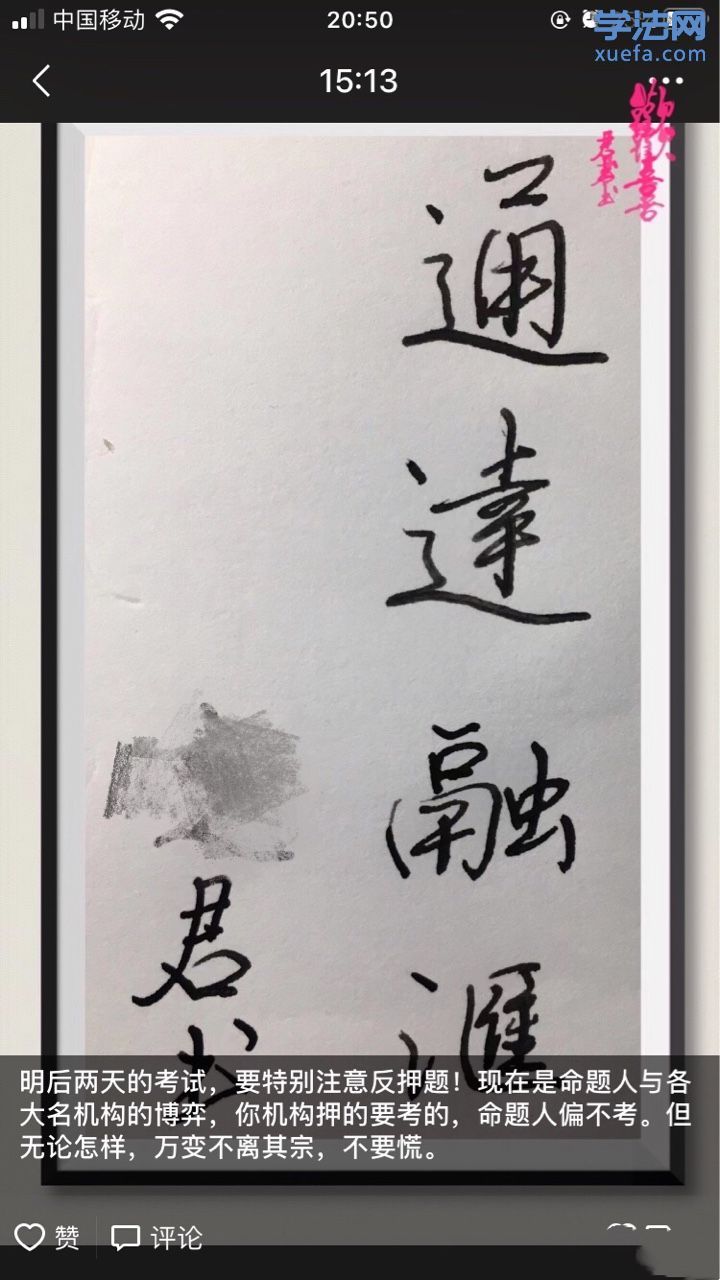 中国移动
20:50
学法网
xuefa.com
15:13
通達融滙
君书
明后两天的考试，要特别注意反押题！现在是命题人与各
大名机构的博弈，你机构押的要考的，命题人偏不考。但
无论怎样，万变不离其宗，不要慌。
赞
评论